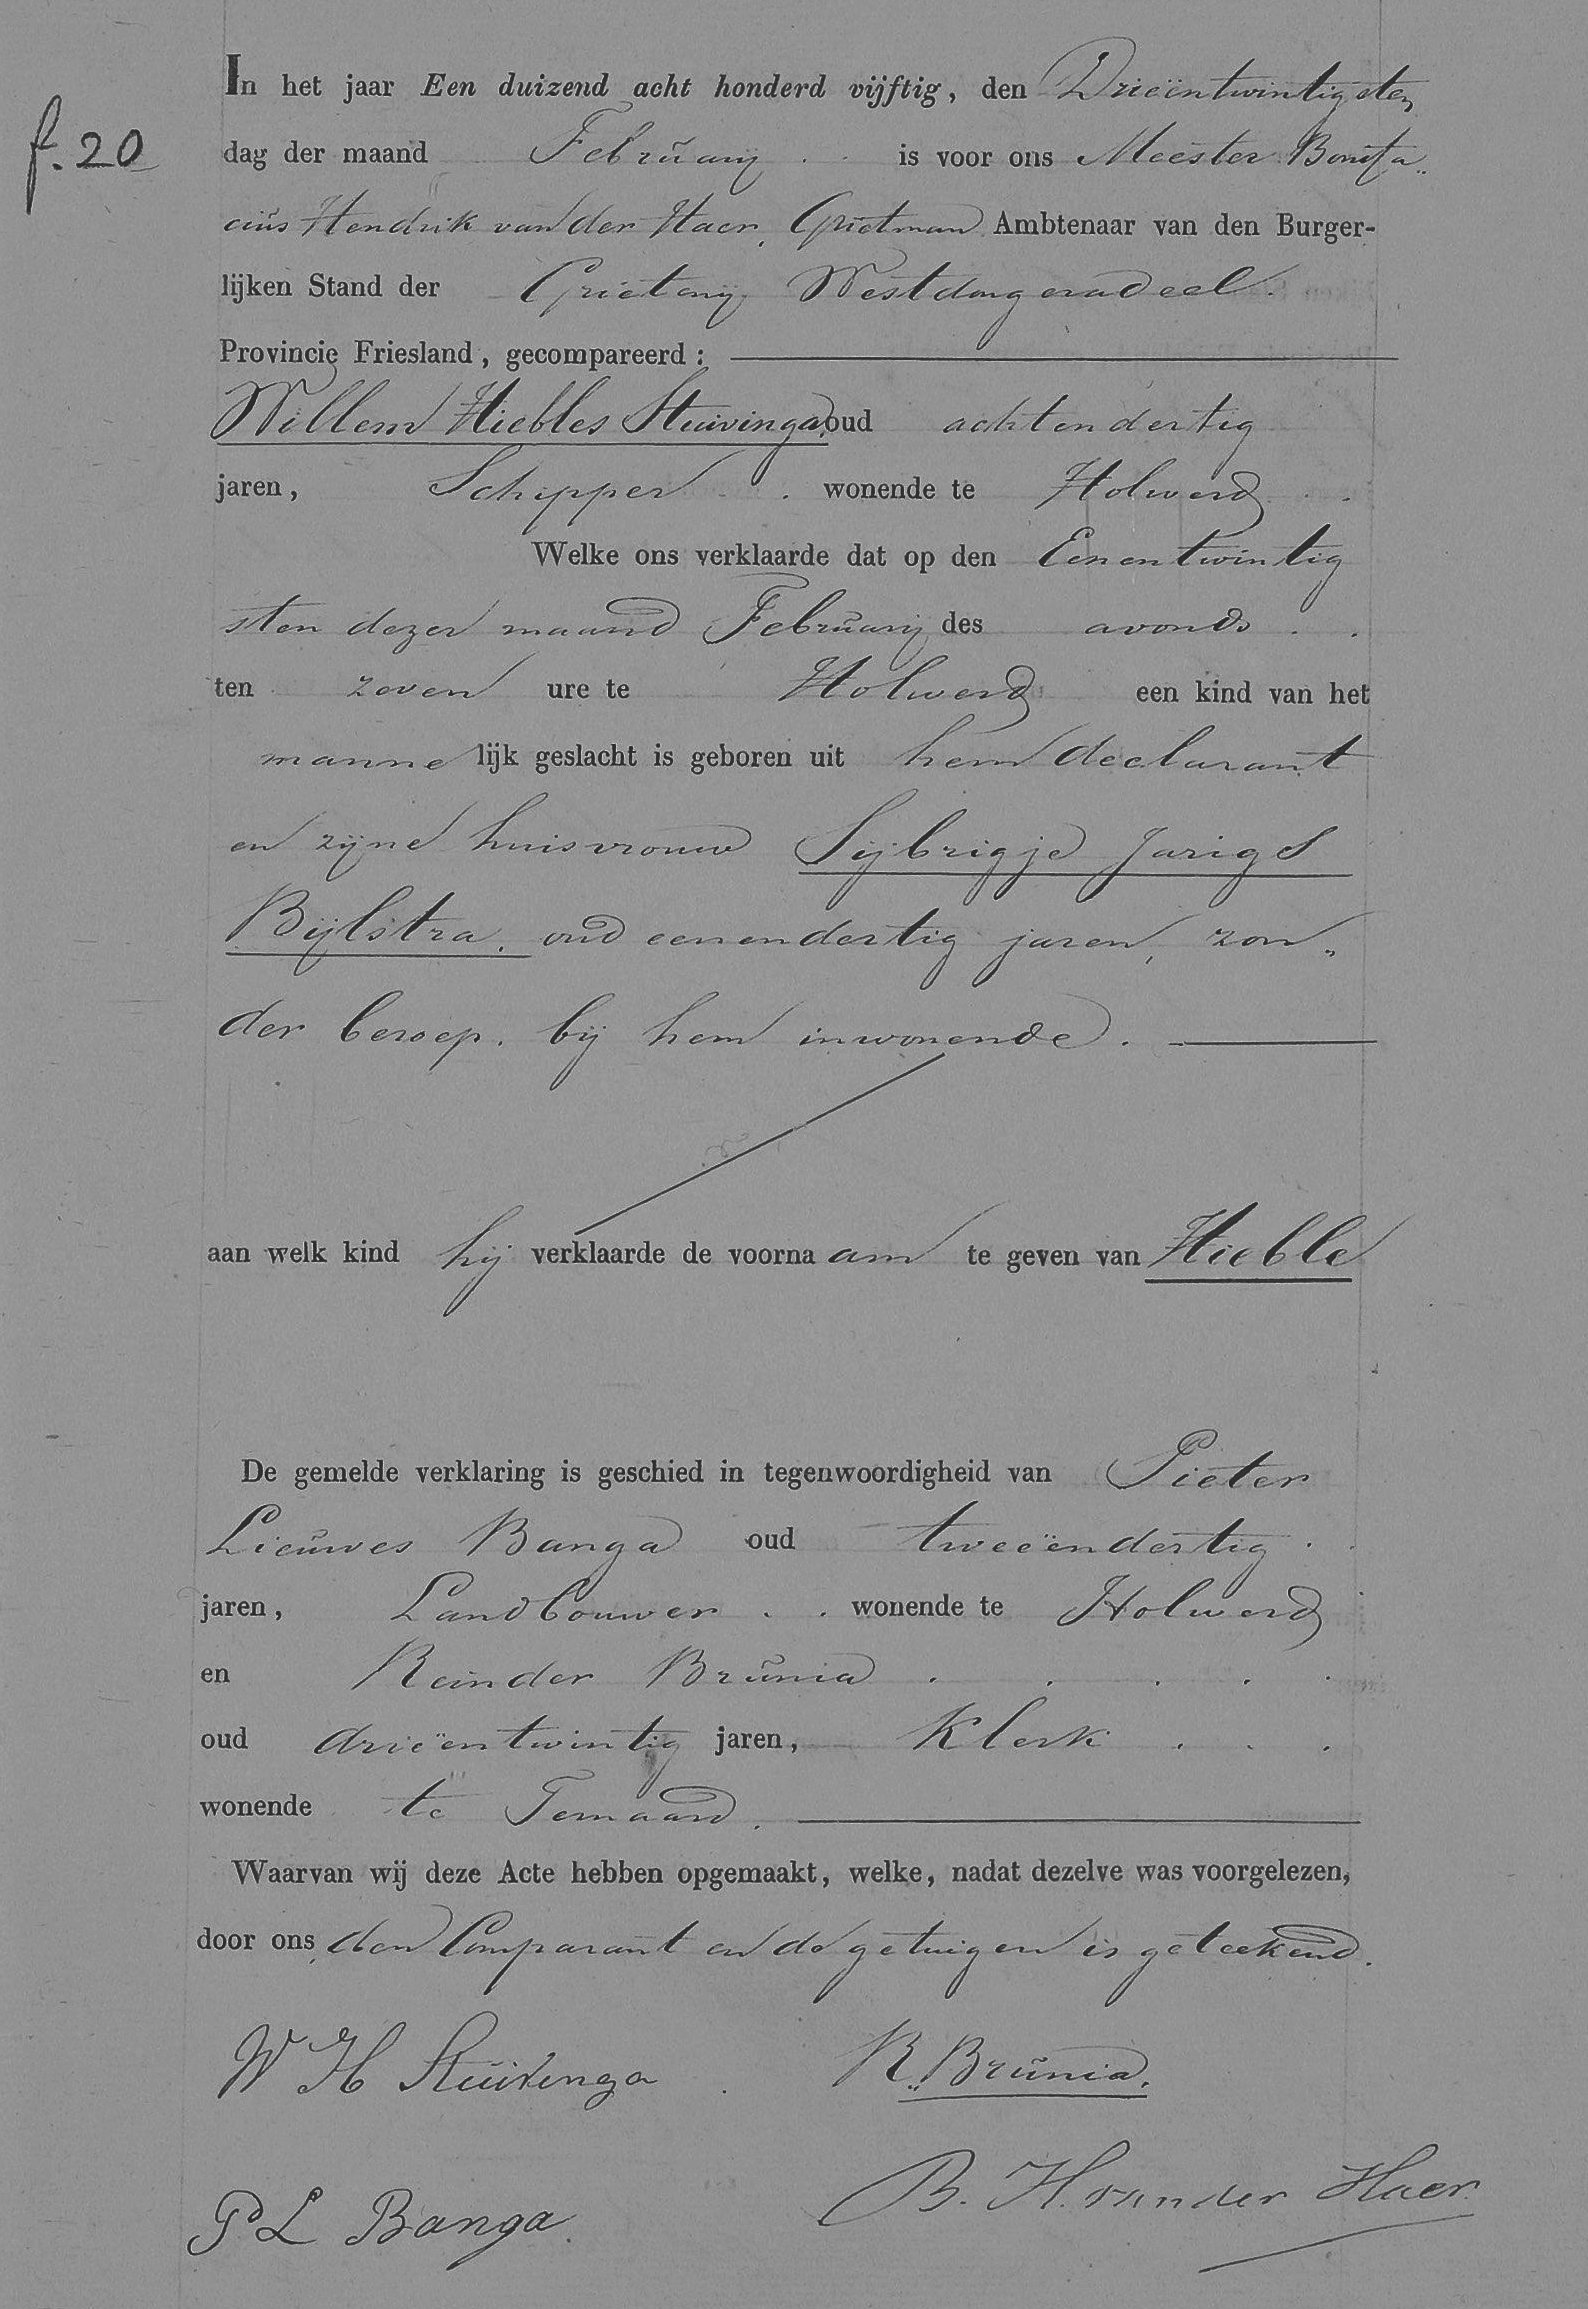 f. 20
In het jaar Een duizend acht honderd vijftig, den Drieëntwintigsten
dag der maand Februarij is voor ons Meester Bonifa„
cius Hendrik van der Haer, Grietman Ambtenaar van den Burger-
lijken Stand der Grietenij Westdongeradeel.
Provincie Friesland, gecompareerd:
Willem Hiebles Stuivinga, oud achtendertig
jaren, Schipper wonende te Holwerd
Welke ons verklaarde dat op den Eenentwintig
sten dezer maand Februarij des avonds
ten zeven ure te Holwerd een kind van het
mannelijk geslacht is geboren uit hem declarant
en zijne huisvrouw Sijbrigje Jarigs
Bijlstra, oud eenendertig jaren, zon„
der beroep, bij hem inwonende.
aan welk kind hij verklaarde de voornaam te geven van Hieble
De gemelde verklaring is geschied in tegenwoordigheid van Pieter
Lieuwes Banga oud tweeëndertig
jaren, Landbouwer wonende te Holwerd
en Reinder Brunia
oud drieëntwintig jaren, Klerk
wonende te Ternaard.
Waarvan wij deze Acte hebben opgemaakt, welke, nadat dezelve was voorgelezen,
door ons, den Comparant en de getuigen is geteekend.
W H Stuivenga R. Brunia.
P L Banga B. H. van der Haer